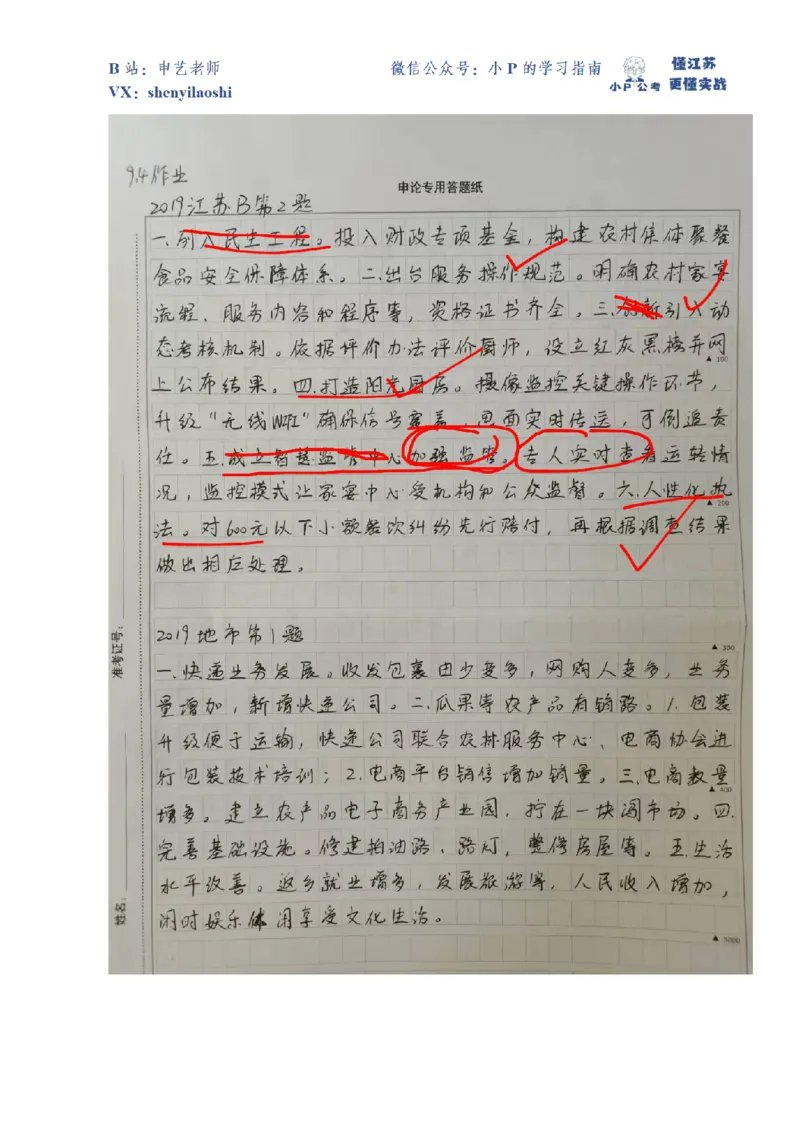 B 站：申艺老师
微信公众号：小 P 的学习指南
VX：shenyilaoshi
小P公考
懂江苏
更懂实战
9.4作业
申论专用答题纸
2019江苏B第2题
一.列入民生工程。投入财政专项基金，构建农村集体聚餐
食品安全保障体系。二.出台服务操作规范。明确农村家宴
流程、服务内容和程序等，资格证书齐全。三.创新引入动
态考核机制。依据评价办法评价厨师，设立红灰黑榜并网
▲ 100
上公布结果。四.打造阳光厨房。摄像监控关键操作环节，
升级“无线WIFI”确保信号覆盖，画面实时传送，可倒追责
任。五.成立智慧监管中心加强监管。专人实时查看运转情
况，监控模式让家宴中心受机构和公众监督。六.人性化执
▲ 200
法。对600元以下小额餐饮纠纷先行赔付，再根据调查结果
做出相应处理。
2019地市第1题
▲ 300
一.快递业务发展。收发包裹由少变多，网购人变多，业务
量增加，新增快递公司。二.瓜果等农产品有销路。1.包装
升级便于运输，快递公司联合农林服务中心、电商协会进
行包装技术培训；2.电商平台销售增加销量。三.电商数量
▲ 400
增多。建立农产品电子商务产业园，拧在一块闯市场。四.
完善基础设施。修建柏油路、路灯，整修房屋等。五.生活
水平改善。返乡就业增多，发展旅游等，人民收入增加，
闲时娱乐休闲享受文化生活。
▲ 5000
准考证号：
姓名：